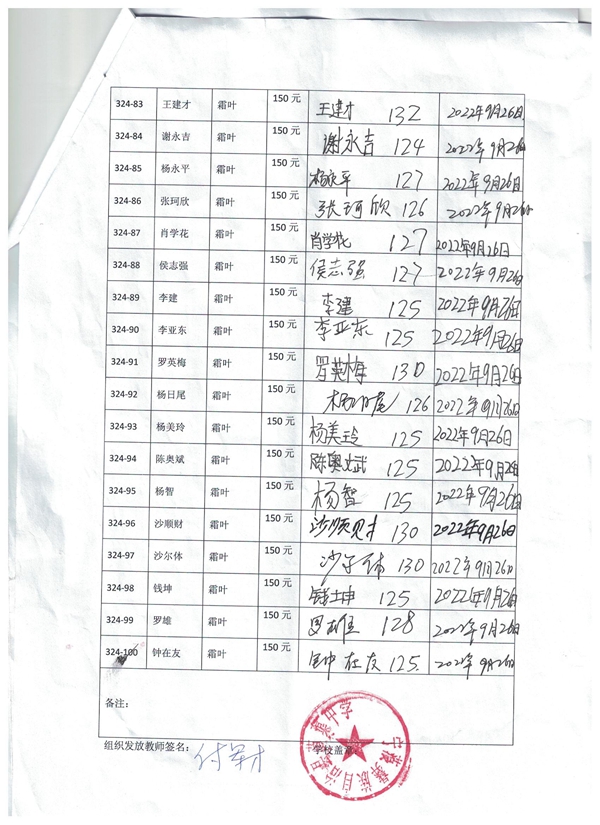 324-83 王建才 霜叶 150 元 王建才 132 2022年9月26日
324-84 谢永吉 霜叶 150 元 谢永吉 124 2022年9月26日
324-85 杨永平 霜叶 150 元 杨永平 127 2022年9月26日
324-86 张珂欣 霜叶 150 元 张珂欣 126 2022年9月26日
324-87 肖学花 霜叶 150 元 肖学花 127 2022年9月26日
324-88 侯志强 霜叶 150 元 侯志强 127 2022年9月26日
324-89 李建 霜叶 150 元 李建 125 2022年9月26日
324-90 李亚东 霜叶 150 元 李亚东 125 2022年9月26日
324-91 罗英梅 霜叶 150 元 罗英梅 130 2022年9月26日
324-92 杨日尾 霜叶 150 元 杨日尾 126 2022年9月26日
324-93 杨美玲 霜叶 150 元 杨美玲 125 2022年9月26日
324-94 陈奥斌 霜叶 150 元 陈奥斌 125 2022年9月26日
324-95 杨智 霜叶 150 元 杨智 125 2022年9月26日
324-96 沙顺财 霜叶 150 元 沙顺财 130 2022年9月26日
324-97 沙尔体 霜叶 150 元 沙尔体 130 2022年9月26日
324-98 钱坤 霜叶 150 元 钱坤 125 2022年9月26日
324-99 罗雄 霜叶 150 元 罗雄 128 2022年9月26日
324-100 钟在友 霜叶 150 元 钟在友 125. 2022年9月26日
备注：
组织发放教师签名： 付军才 学校盖章
宁蒗彝族自治县 中学